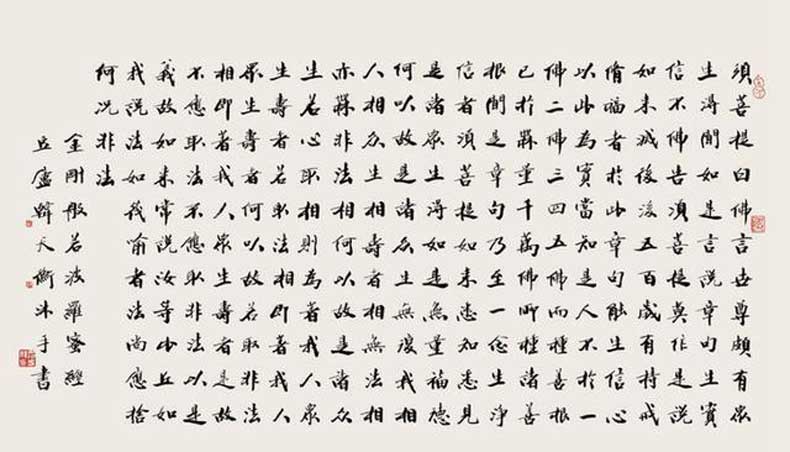 須菩提白佛言世尊頗有眾
生得聞如是言說章句生實
信不佛告須菩提莫作是說
如來滅後後五百歲有持戒
脩福者於此章句能生信心
以此為實當知是人不於一
佛二佛三四五佛而種善根
已於無量千萬佛所種諸善
根聞是章句乃至一念生淨
信者須菩提如來悉知悉見
是諸眾生得如是無量福德
何以故是諸众生無復我相
人相众生相壽者相無法相
亦無非法相何以故是諸众
生若心取相則為著我人眾
生壽者若取法相即著我人
眾生壽者何以故若取非法
相即著我人眾生壽者是故
不應取法不應取非法以是
義故如來常說汝等比丘知
我說法如筏喻者法尚應捨
何況非法
金剛般若波羅蜜經
豆廬韓天衡沐手書